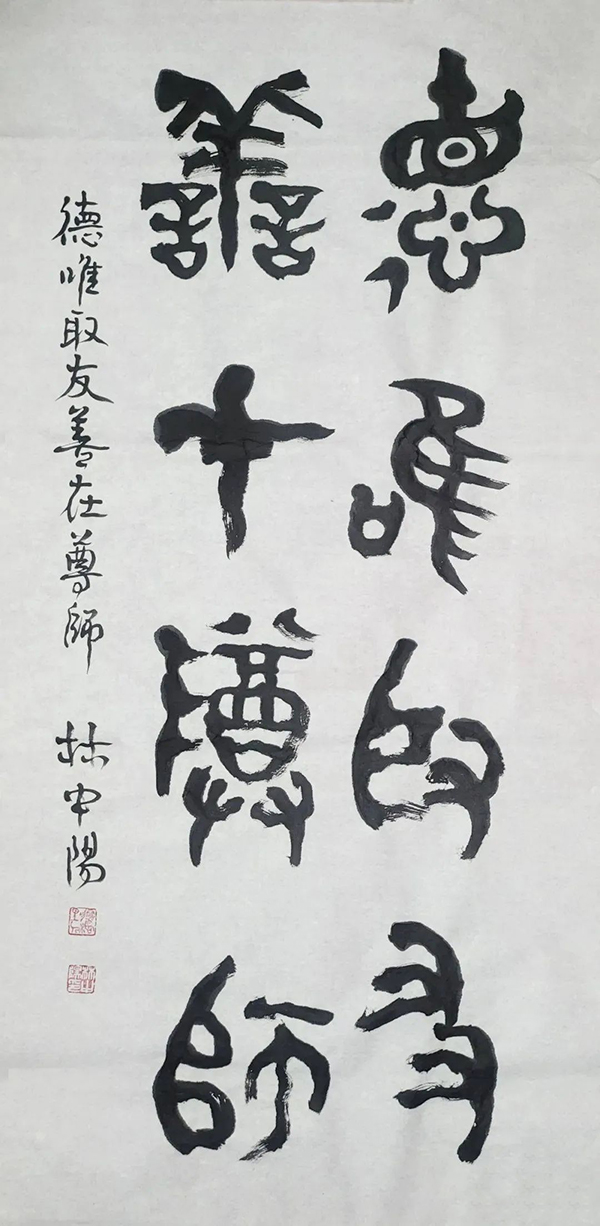 德唯取友
善在尊師
德唯取友善在尊師 林中陽